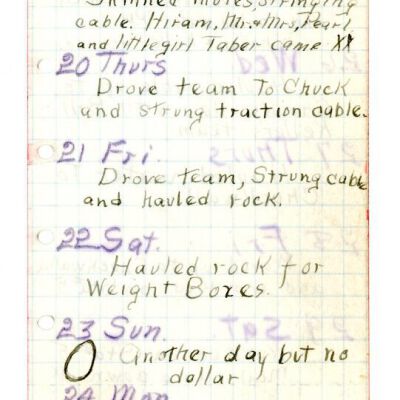 Skinned mules, stringing
cable. Hiram, Mr. & Mrs, Pearl
and little girl Taber came XX
20 Thurs
Drove team To Chuck
and strung traction cable.
21 Fri.
Drove team, Strung cable
and hauled rock.
22 Sat.
Hauled rock for
Weight Boxes.
23 Sun.
O Another day but no
dollar
24 Mon